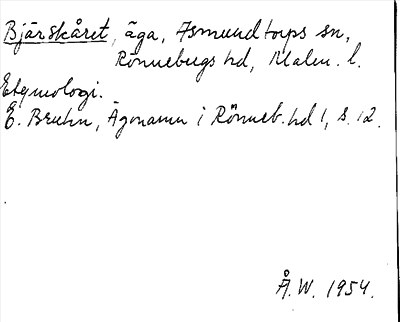 Bjärskåret, äga, Asmundtorps sn,
Rönnebergs hd, Malm. l.
Etymologi.
E. Bruhn, Ägonamn i Rönneb. hd 1, s. 12.
Å.W. 1954.